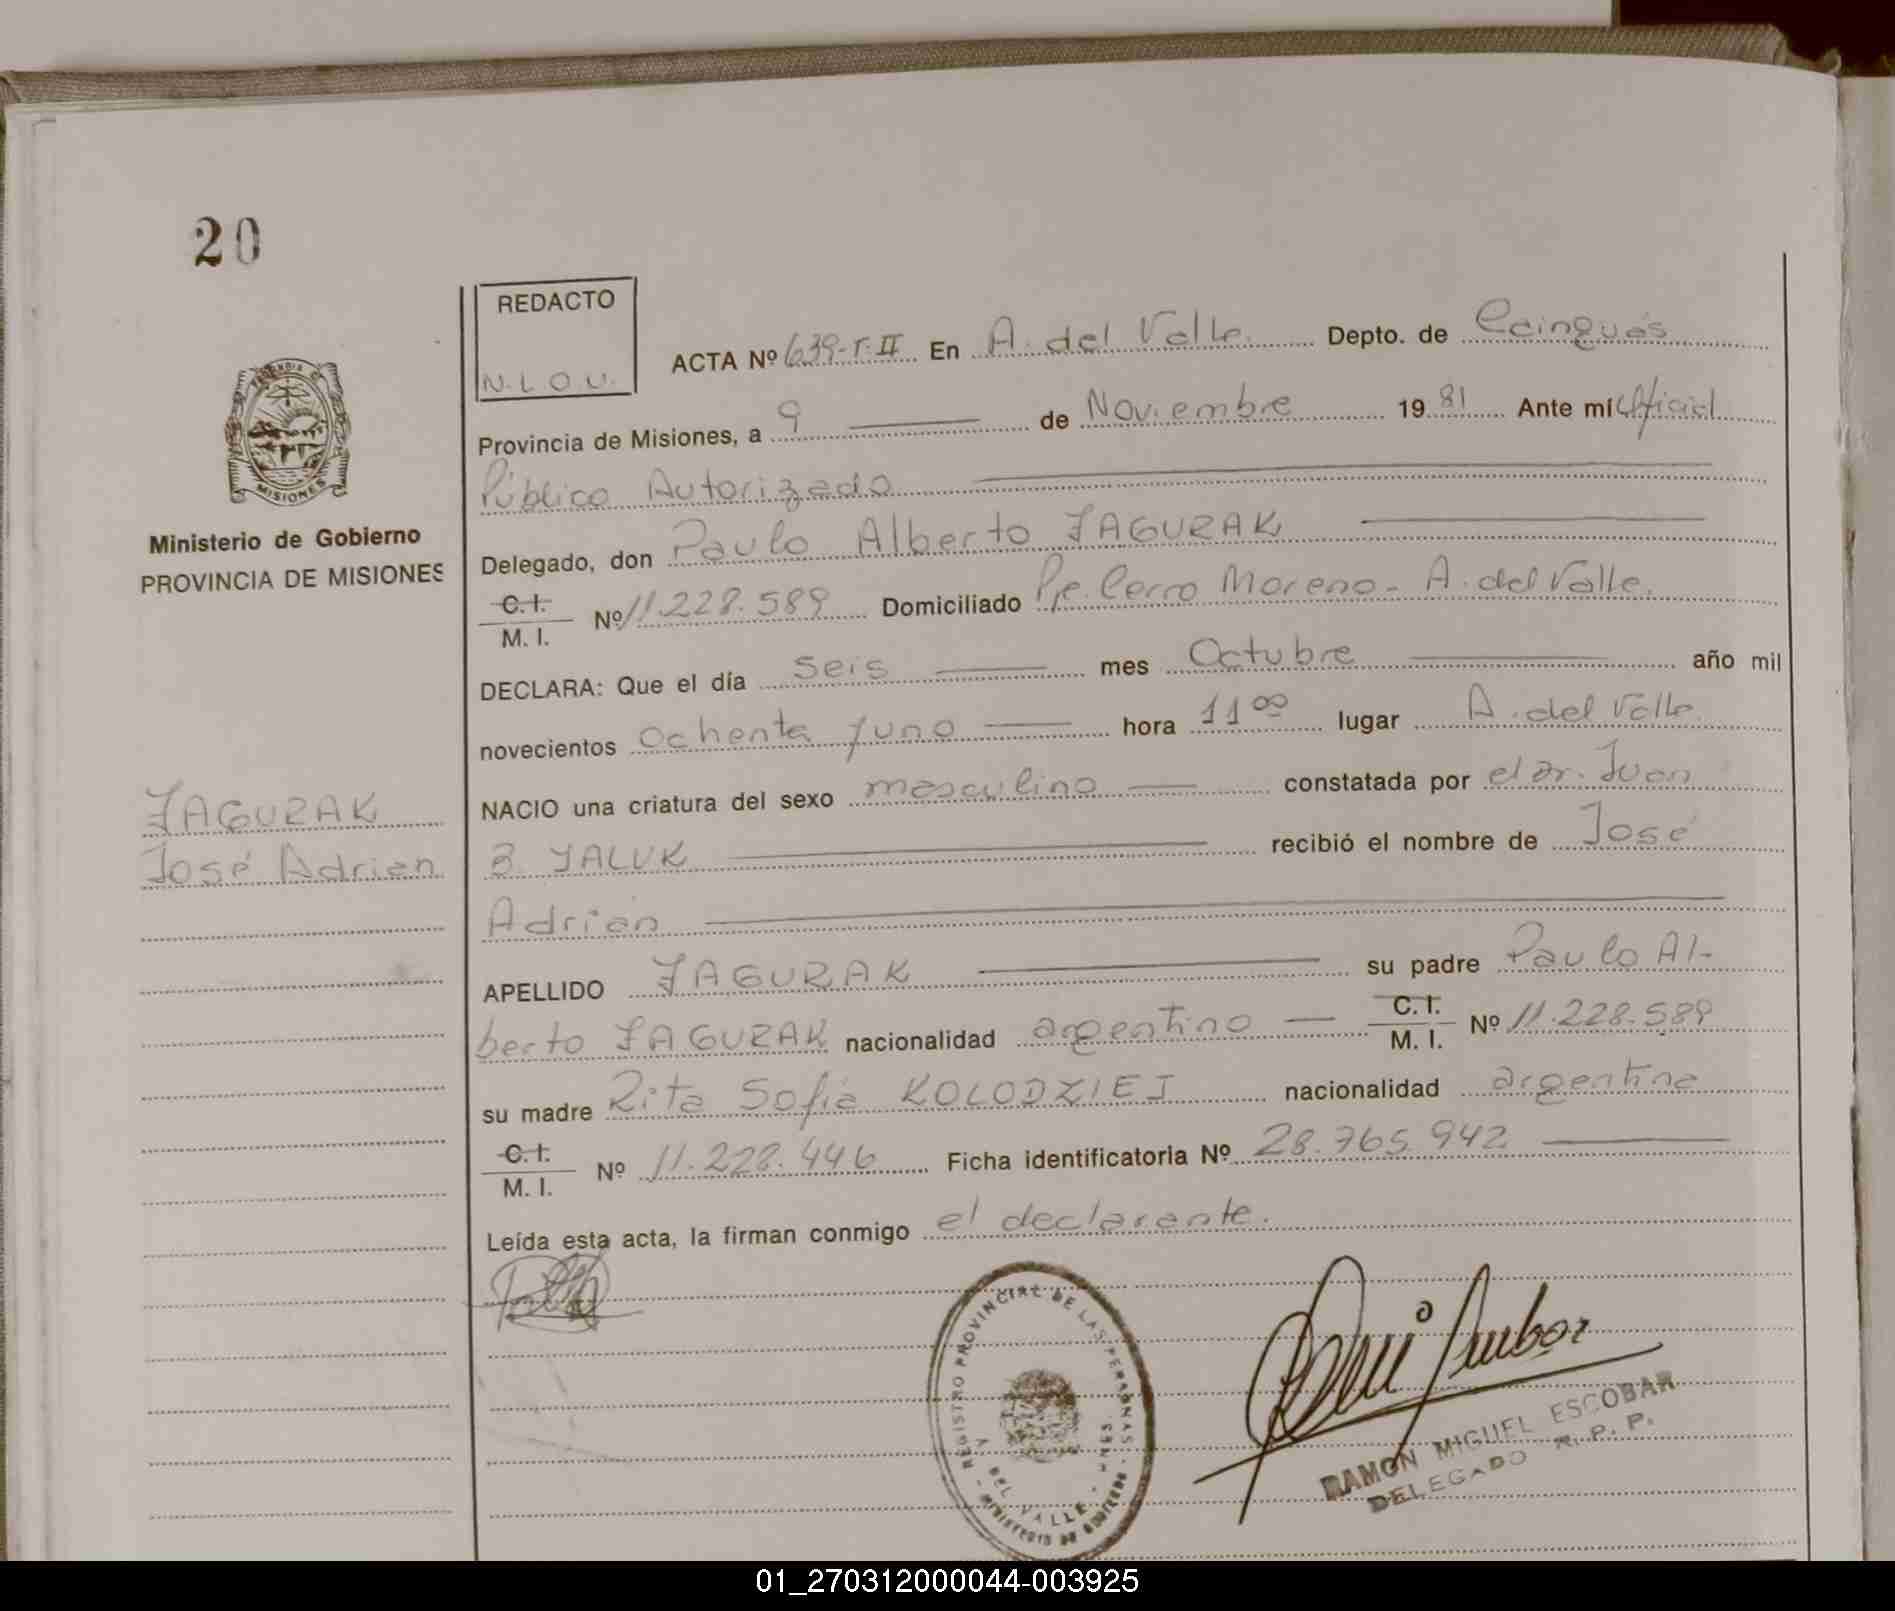 20
REDACTO
N.L.O.U.
ACTA Nº 639-T.II En A. del Valle. Depto. de Cainguás
Provincia de Misiones, a 9 de Noviembre 1981 Ante mí Oficial
Público Autorizado
Delegado, don Paulo Alberto JAGURAK
C.I. M.I. Nº 11.228.589 Domiciliado Pje. Cerro Moreno - A. del Valle.
DECLARA: Que el día seis mes Octubre año mil
novecientos ochenta y uno hora 11 00 lugar A. del Valle
NACIO una criatura del sexo masculino constatada por el dr. Juan
B. YALUK recibió el nombre de José
Adrián
APELLIDO JAGURAK su padre Paulo Al-
berto JAGURAK nacionalidad argentino C.I. M.I. Nº 11.228.589
su madre Rita Sofía KOLODZIEJ nacionalidad argentina
C.I. M.I. Nº 11.228.446 Ficha identificatoria Nº 28.765.942
Leída esta acta, la firman conmigo el declarante.
PROVINCIA DE MISIONES
Ministerio de Gobierno
PROVINCIA DE MISIONES
JAGURAK
José Adrián
REGISTRO PROVINCIAL DE LAS PERSONAS
MINISTERIO DE GOBIERNO
A. DEL VALLE - MNES.
RAMON MIGUEL ESCOBAR
DELEGADO R. P. P.
01_270312000044-003925